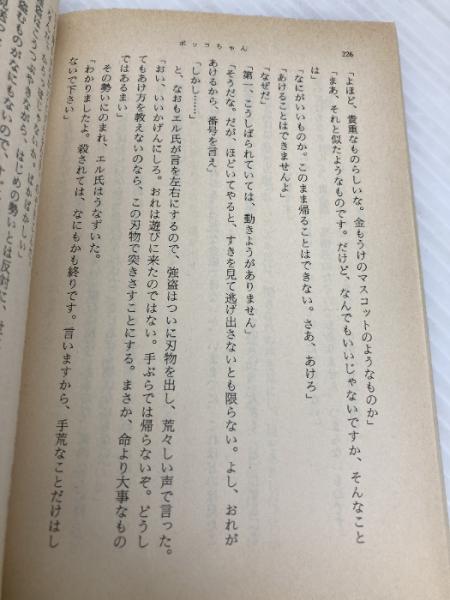 226
ボッコちゃん
「よほど、貴重なものらしいな。金もうけのマスコットのようなものか」
「まあ、それと似たようなものです。だけど、なんでもいいじゃないですか、そんなこと
は」
「なにがいいものか。このまま帰ることはできない。さあ、あけろ」
「あけることはできませんよ」
「なぜだ」
「第一、こうしばられていては、動きようがありません」
「そうだな。だが、ほどいてやると、すきを見て逃げ出さないとも限らない。よし、おれが
あけるから、番号を言え」
「しかし……」
と、なおもエル氏が言を左右にするので、強盗はついに刃物を出し、荒々しい声で言った。
「おい、いいかげんにしろ。おれは遊びに来たのではない。手ぶらでは帰らないぞ。どうし
てもあけ方を教えないのなら、この刃物で突きさすことにする。まさか、命より大事なもの
ではあるまい」
その勢いにのまれ、エル氏はうなずいた。
「わかりましたよ。殺されては、なにもかも終りです。言いますから、手荒なことだけはし
ないで下さい」